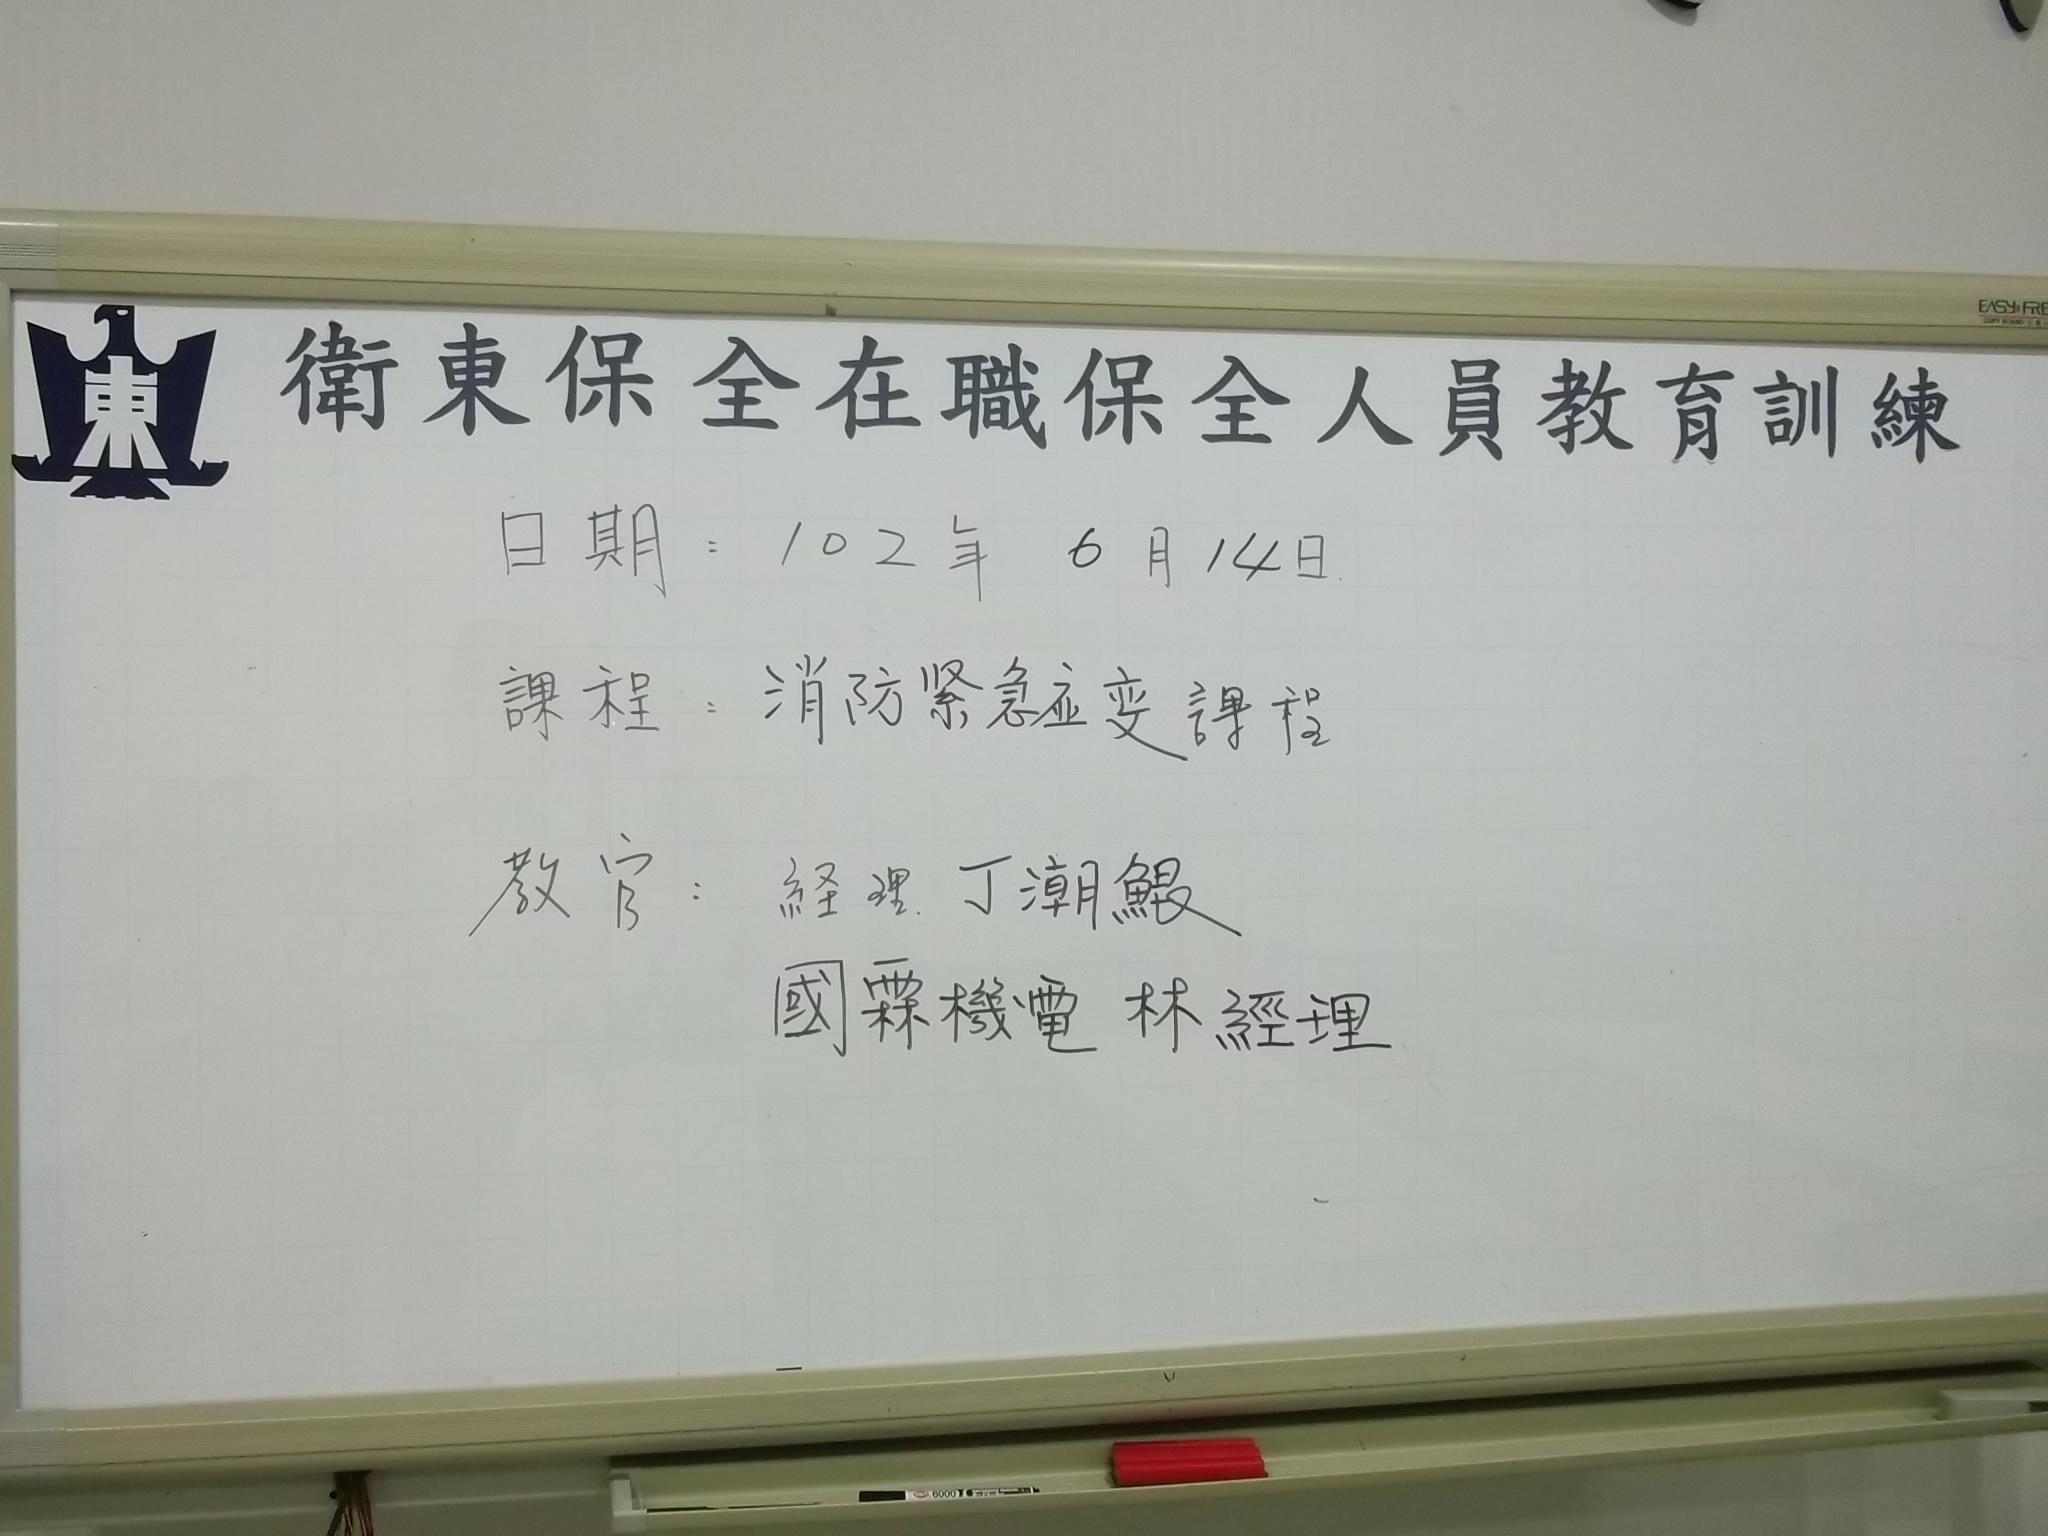 東
衛東保全在職保全人員教育訓練
日期：102年 6月14日
課程：消防緊急应变課程
教官：経理 丁潮鯤
國霖機電 林經理
EASY FRE
6000